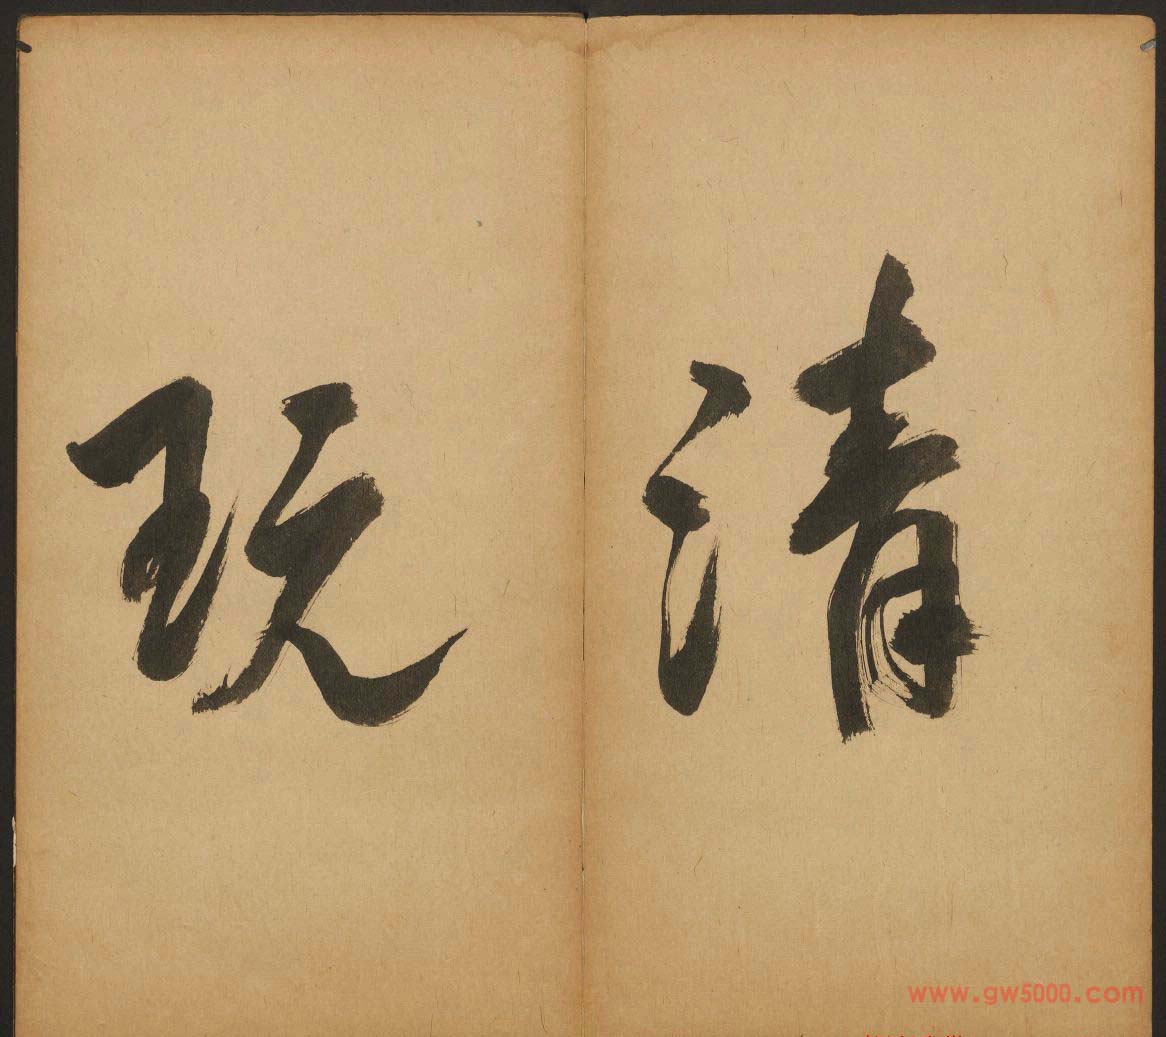 清
玩
www.gw5000.com